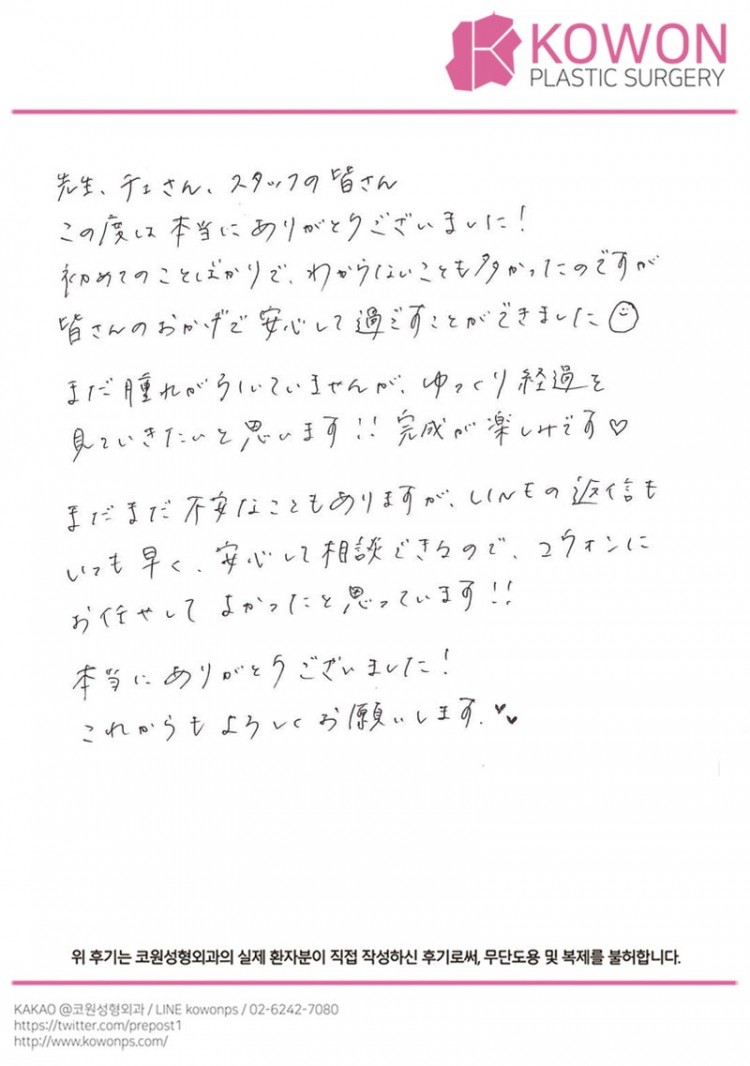 KOWON
PLASTIC SURGERY
先生、チェさん、スタッフの皆さん
この度は本当にありがとうございました!
初めてのことばかりで、わからないことも多かったのですが
皆さんのおかげで安心して過ごすことができました
まだ腫れがひいていませんが、ゆっくり経過を
見ていきたいと思います!! 完成が楽しみです♡
まだまだ不安なこともありますが、LINEの返信も
いつも早く、安心して相談できるので、コウォンに
お任せしてよかったと思っています!!
本当にありがとうございました!
これからもよろしくお願いします.
위 후기는 코원성형외과의 실제 환자분이 직접 작성하신 후기로써, 무단도용 및 복제를 불허합니다.
KAKAO @코원성형외과 / LINE kowonps / 02-6242-7080
https://twitter.com/prepost1
http://www.kowonps.com/